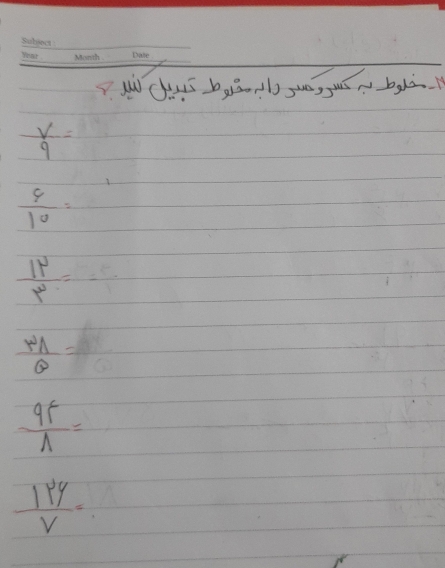 Subject:
Year Month Date
۲- مخلوط به کسر و کسر را به مخلوط تبدیل کنید ؟
۷/۹ =
۶/۱۰ =
۱۲/۳ =
۳۸/۵ =
۹۴/۸ =
۱۲۶/۷ =